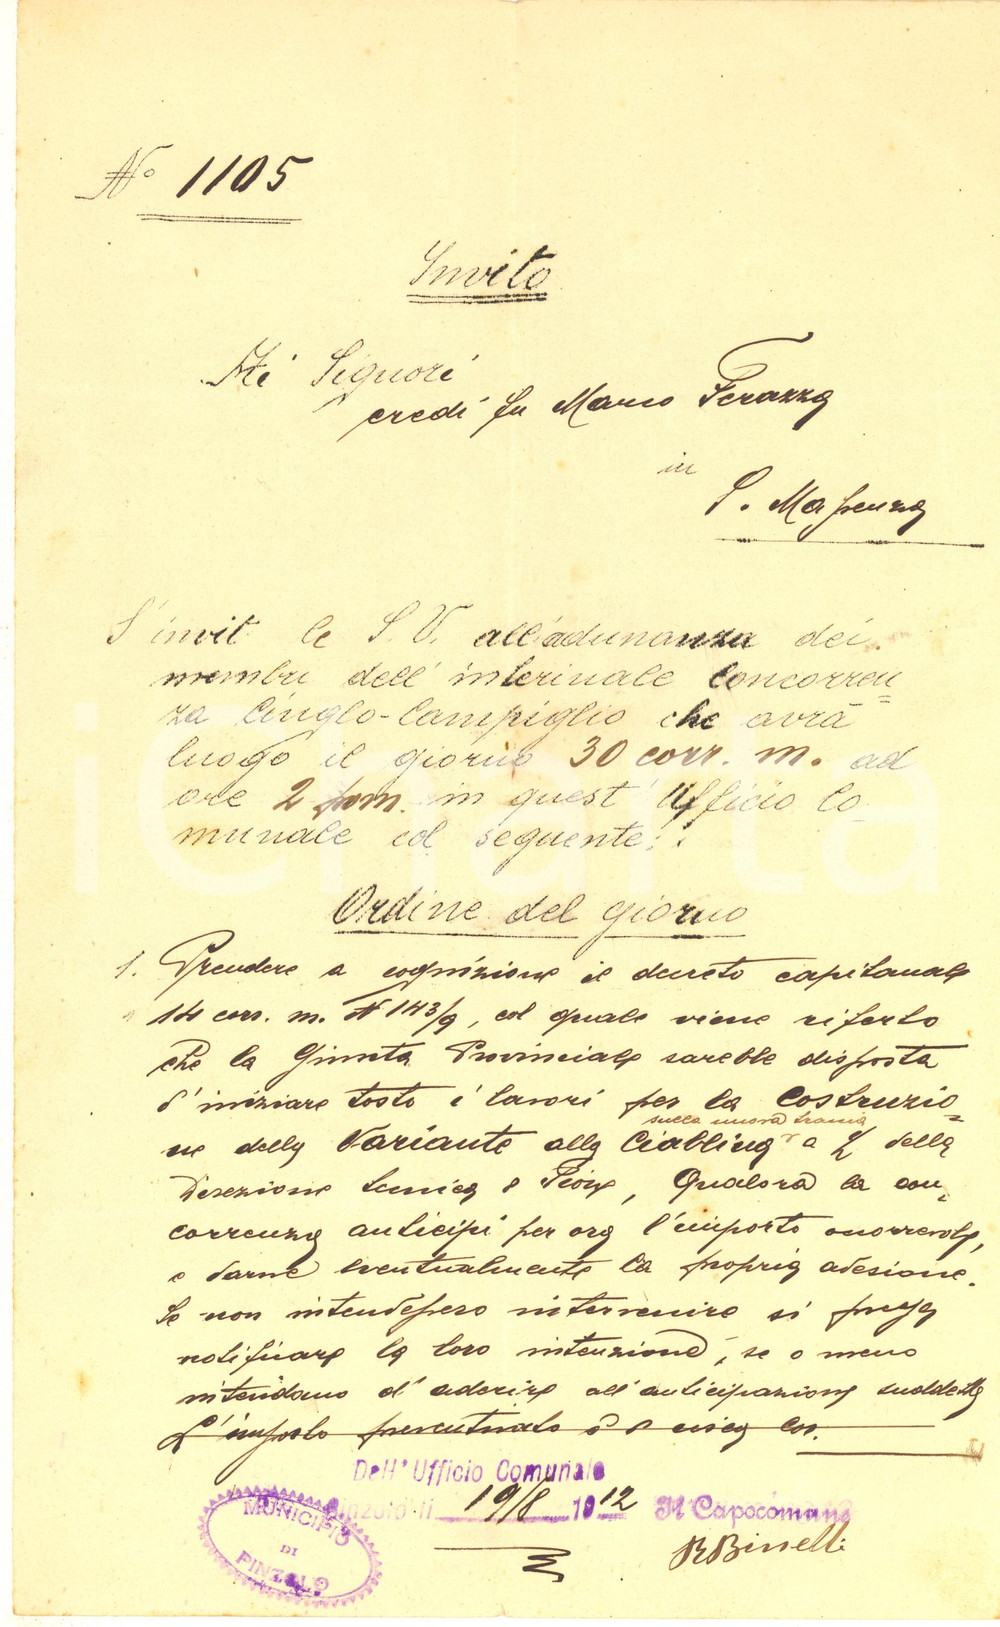 No 1105
Invito
Ai Signori
eredi fu Marco Ferazza
in
S. Massenza
S'invit le S. V. all'adunanza dei
membri dell' interinale Concorren=
za Cinglo-Campiglio che avrà
luogo il giorno 30 corr. m. ad
ore 2 pom. in quest' Ufficio Co
munale col seguente:
Ordine del giorno
1. Prendere a cognizione il decreto capitanale
14 corr. m. N 143/9, col quale viene riferto
che la Giunta Provinciale sarebbe disposta
d'iniziare tosto i lavori per la Costruzio=
sulla nuova
ne della Variante alla a della
Direzione tecnica e , Qualora la con=
correnza anticipi per ora l'importo occorrevole,
e darne eventualmente la propria adesione.
Se non intendessero intervenire si prega
notificare la loro intenzione, se o meno
intendano d' aderire all'anticipazione suddetta
L'importo preventivato è di circa Cor.
Dell' Ufficio Comunale
Pinzolo li 19/8 1912 Il Capocomune
BBinelli
MUNICIPIO
DI
PINZOLO